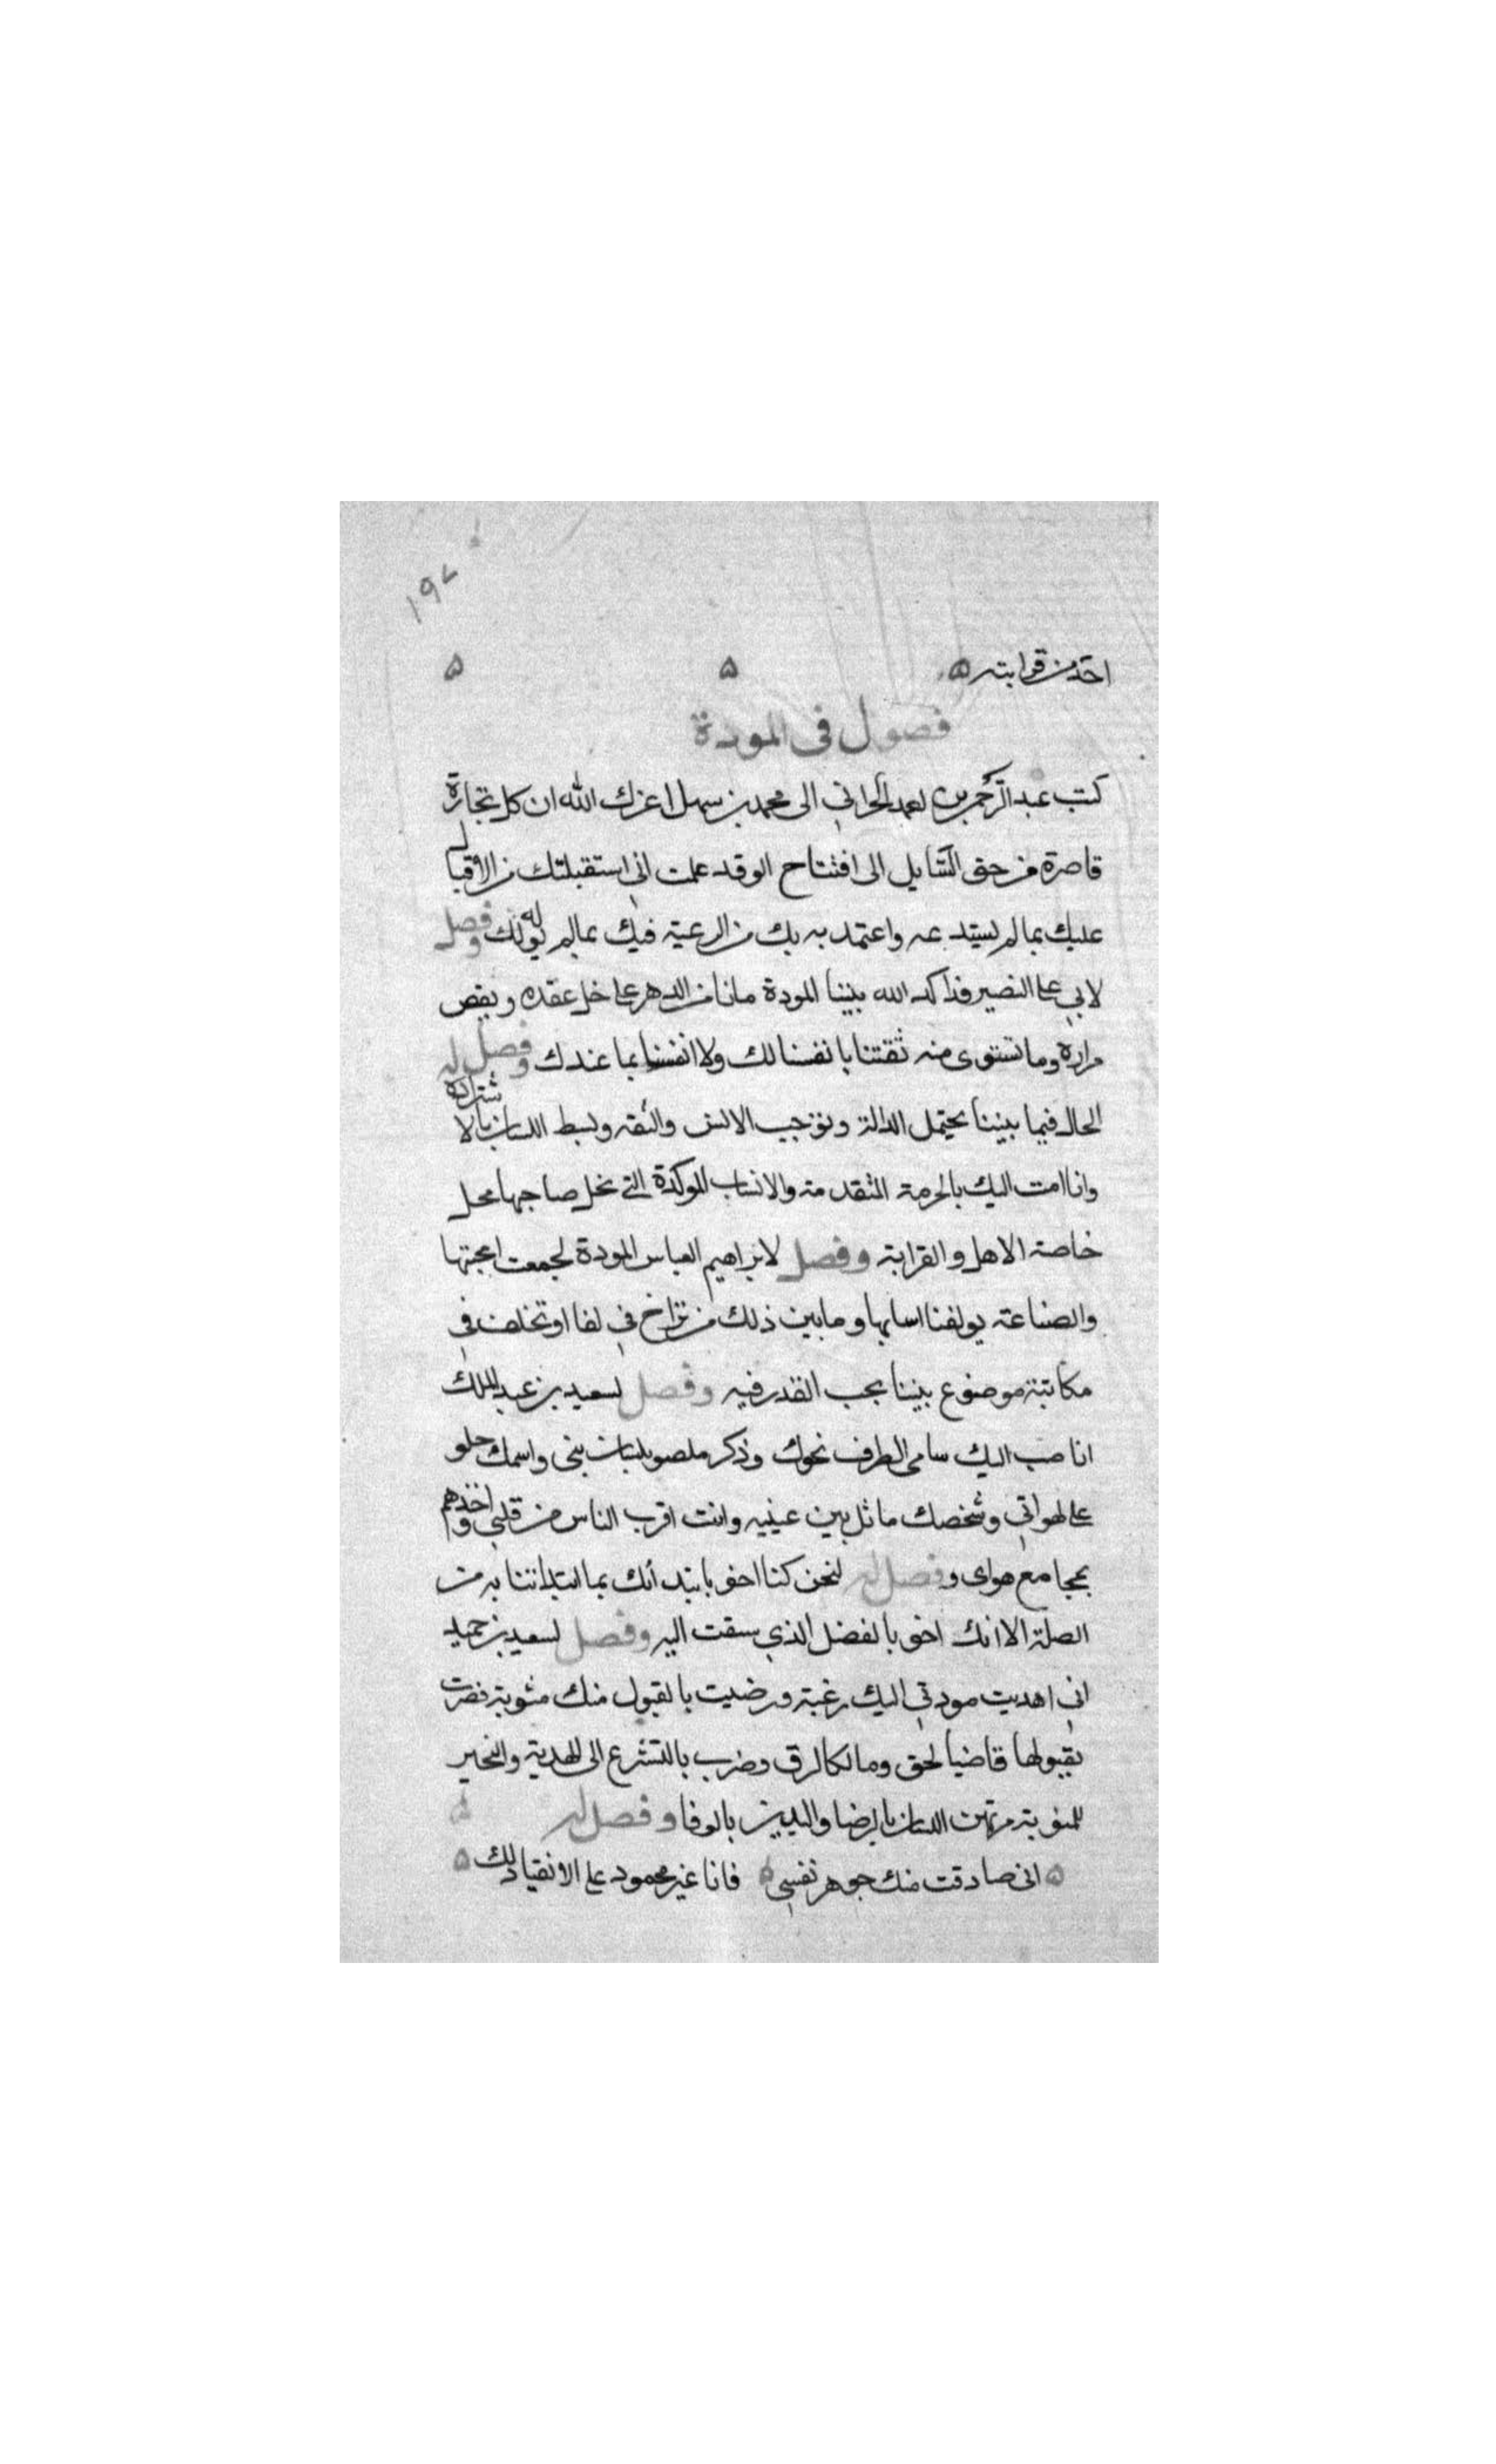 ١٩٧
احد من قرابته ه ه ه
فصول في المودة
كتب عبد الرحمن بن احمد الحراني الى محمد بن سهل اعزك الله ان كل تجازة
قاصرة من حق الى افتتاح الوقد علمت اني استقبلتك من الاقبال
عليك بما لم يستدعه واعتمد به بك من الرعية فيك بمالم يوله لك وفصل
لابي على البصير قد اكد الله بيننا المودة ما نامن الدهر على حل عقده ونقص
مراره وما تستوى منه ثقتنا بانفسنا لك ولا انفسنا بما عندك وفصل له
الحال فيما بيننا يحتمل الدالة ونوجب الانس والثقه وبسط اللسان بالاشتراده
وانا امت اليك بالحرمة المتقدمته والانساب الموكدة التى تحل صاحبها محل
خاصة الاهل والقرابة وفصل لابراهيم العباس المودة تجمعت اعجبتها
والصناعة يولفنا اسابها وما بين ذلك من تراخ في لقا او تخلف في
مكاتبة موضوع بيننا يجب القدر فيه وفصل لسعيد بن عبد الملك
انا صب اليك سامى الطرف نحوك وذكر ملصو بلسان بنى واسمك حلو
على لهواتي وشخصك ماثل بين عينيه وانت اقرب الناس من قلبي واخذهم
بمجامع هواى وفصل له لنحن كنا احق بابتدائك بما ابتداتنا به من
الصلة الا انك احق بالفضل الذي سقت اليه وفصل لسعيد بن حميد
اني اهديت مودتي اليك رغبة ورضيت بالقبول منك مثوبة فصرت
بقبولها قاضيا لحق ومالكا لرق وضرب بالتشرع الى الهدية والتخير
للمثوبة مرتهن اللسان بالرضا واليدين بالوفا وفصل له
ه انى صادقت منك جوهر نفسي ه فانا غير محمود على الانقياد لك ه